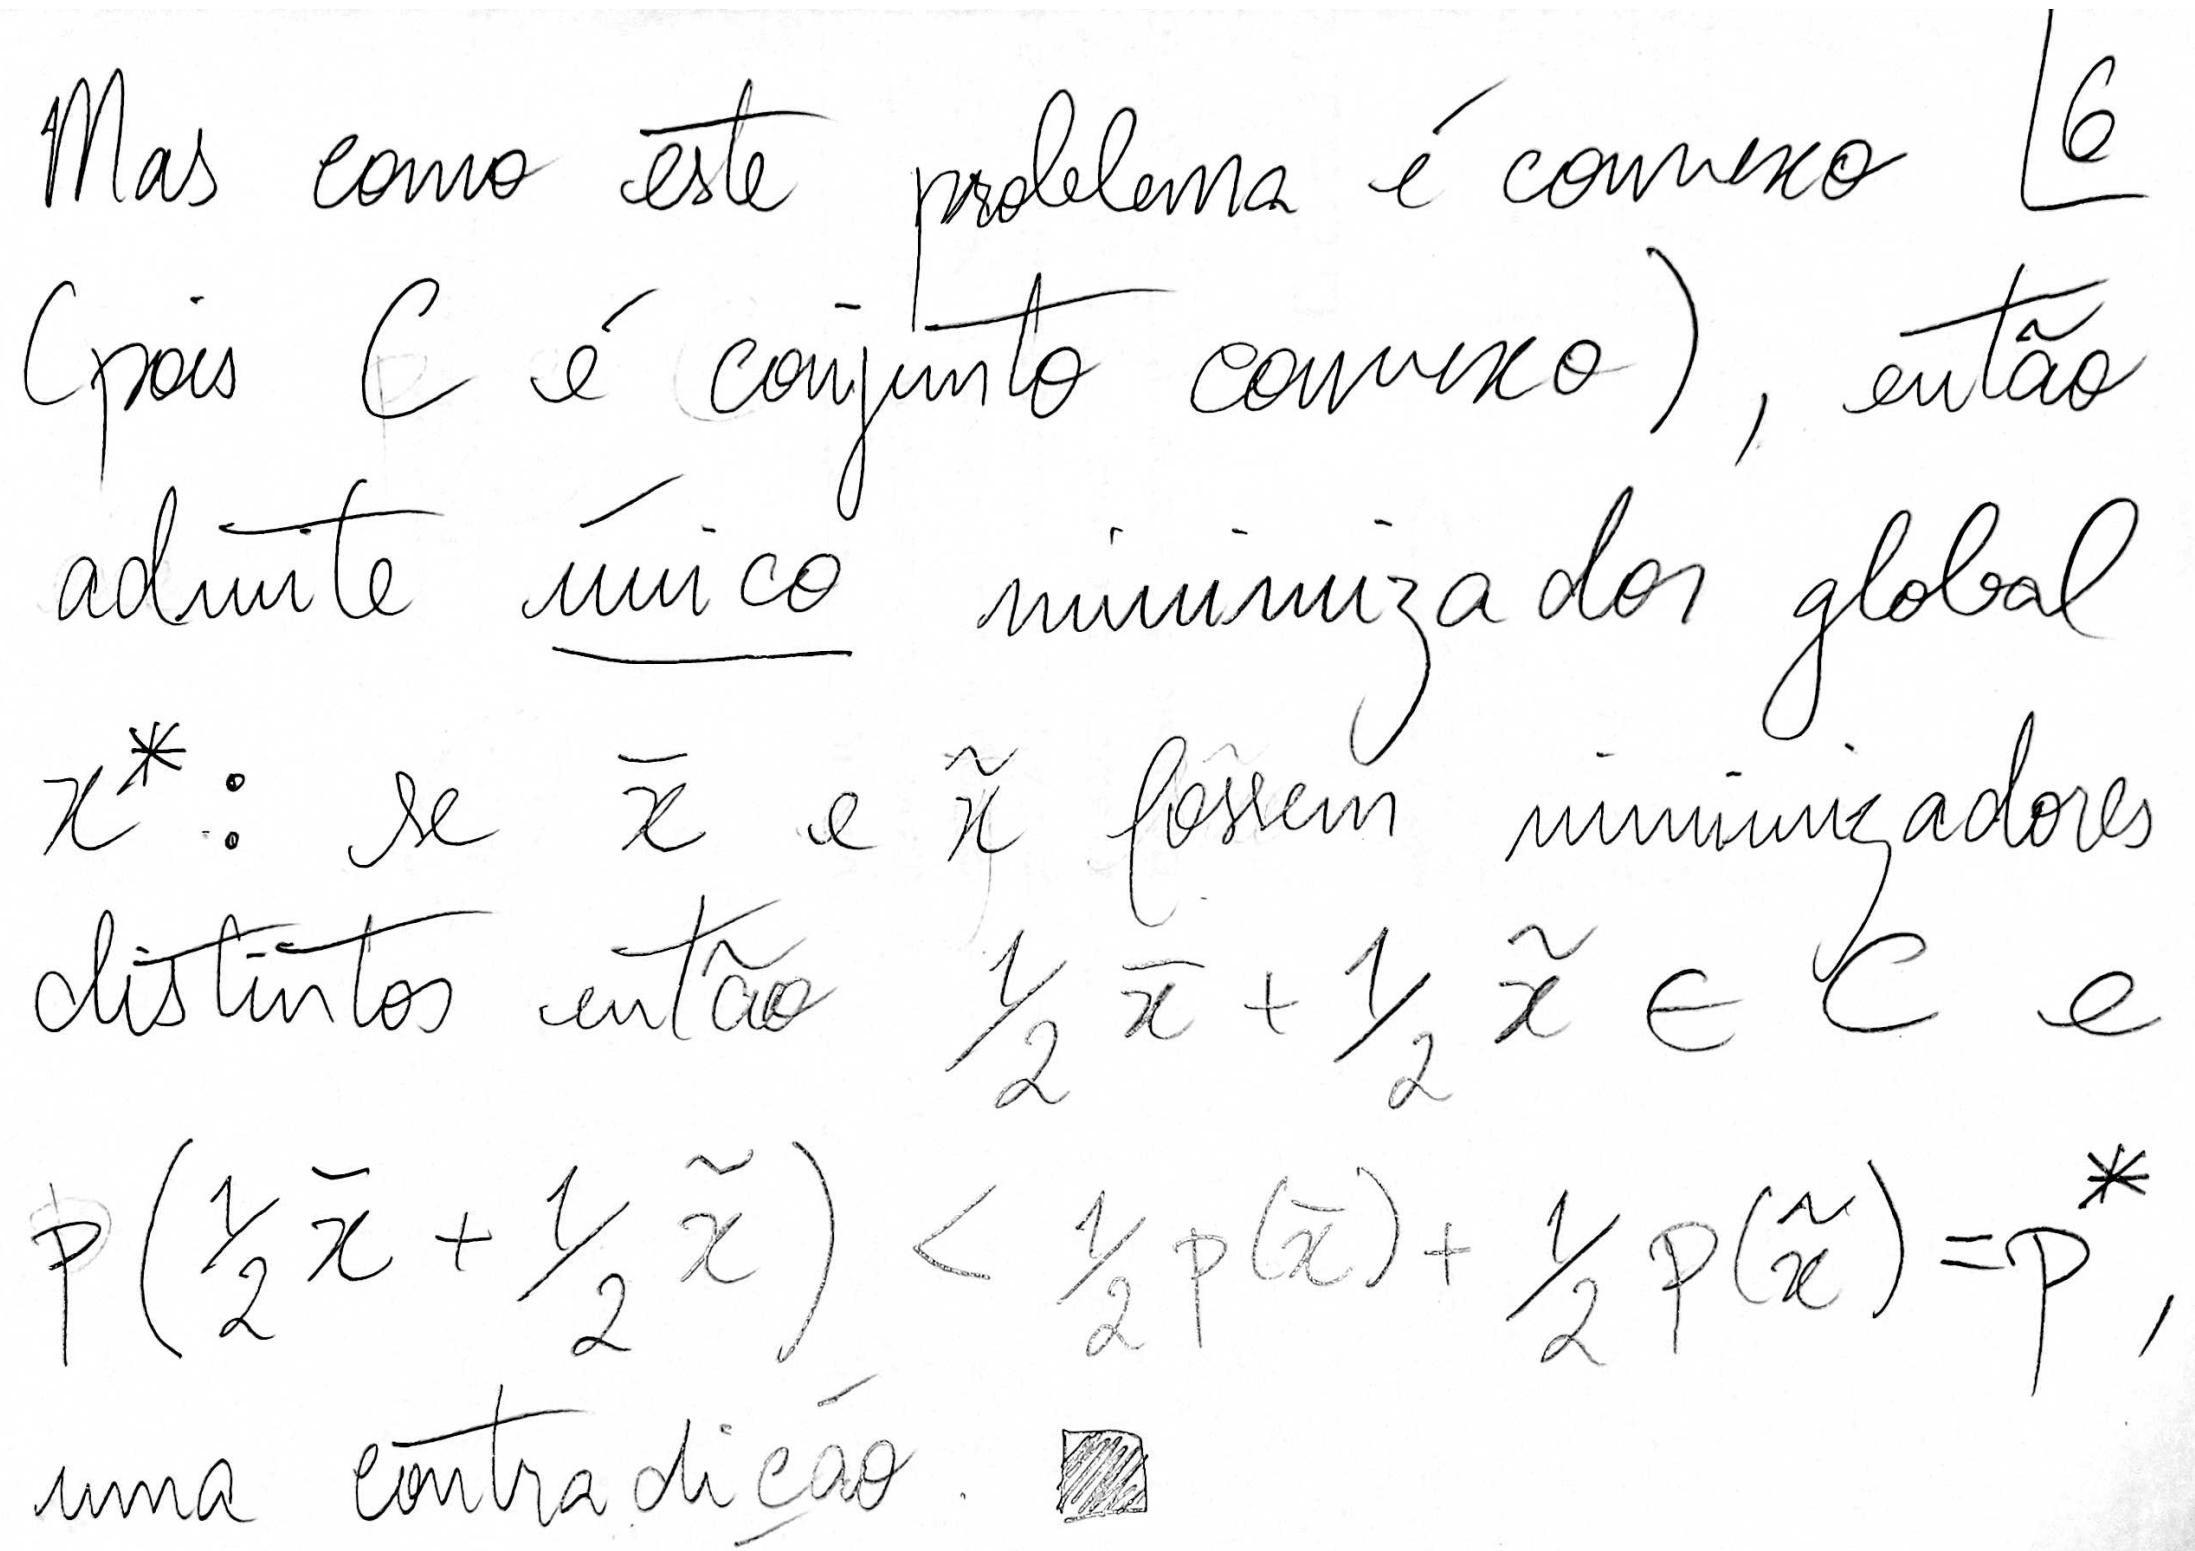 Mas como este problema é convexo 6
(pois C é conjunto convexo), então
admite único minimizador global
x*: se x̄ e x̃ fossem minimizadores
distintos então 1/2 x̄ + 1/2 x̃ ∈ C e
p(1/2 x̄ + 1/2 x̃) < 1/2 p(x̄) + 1/2 p(x̃) = p*,
uma contradição.